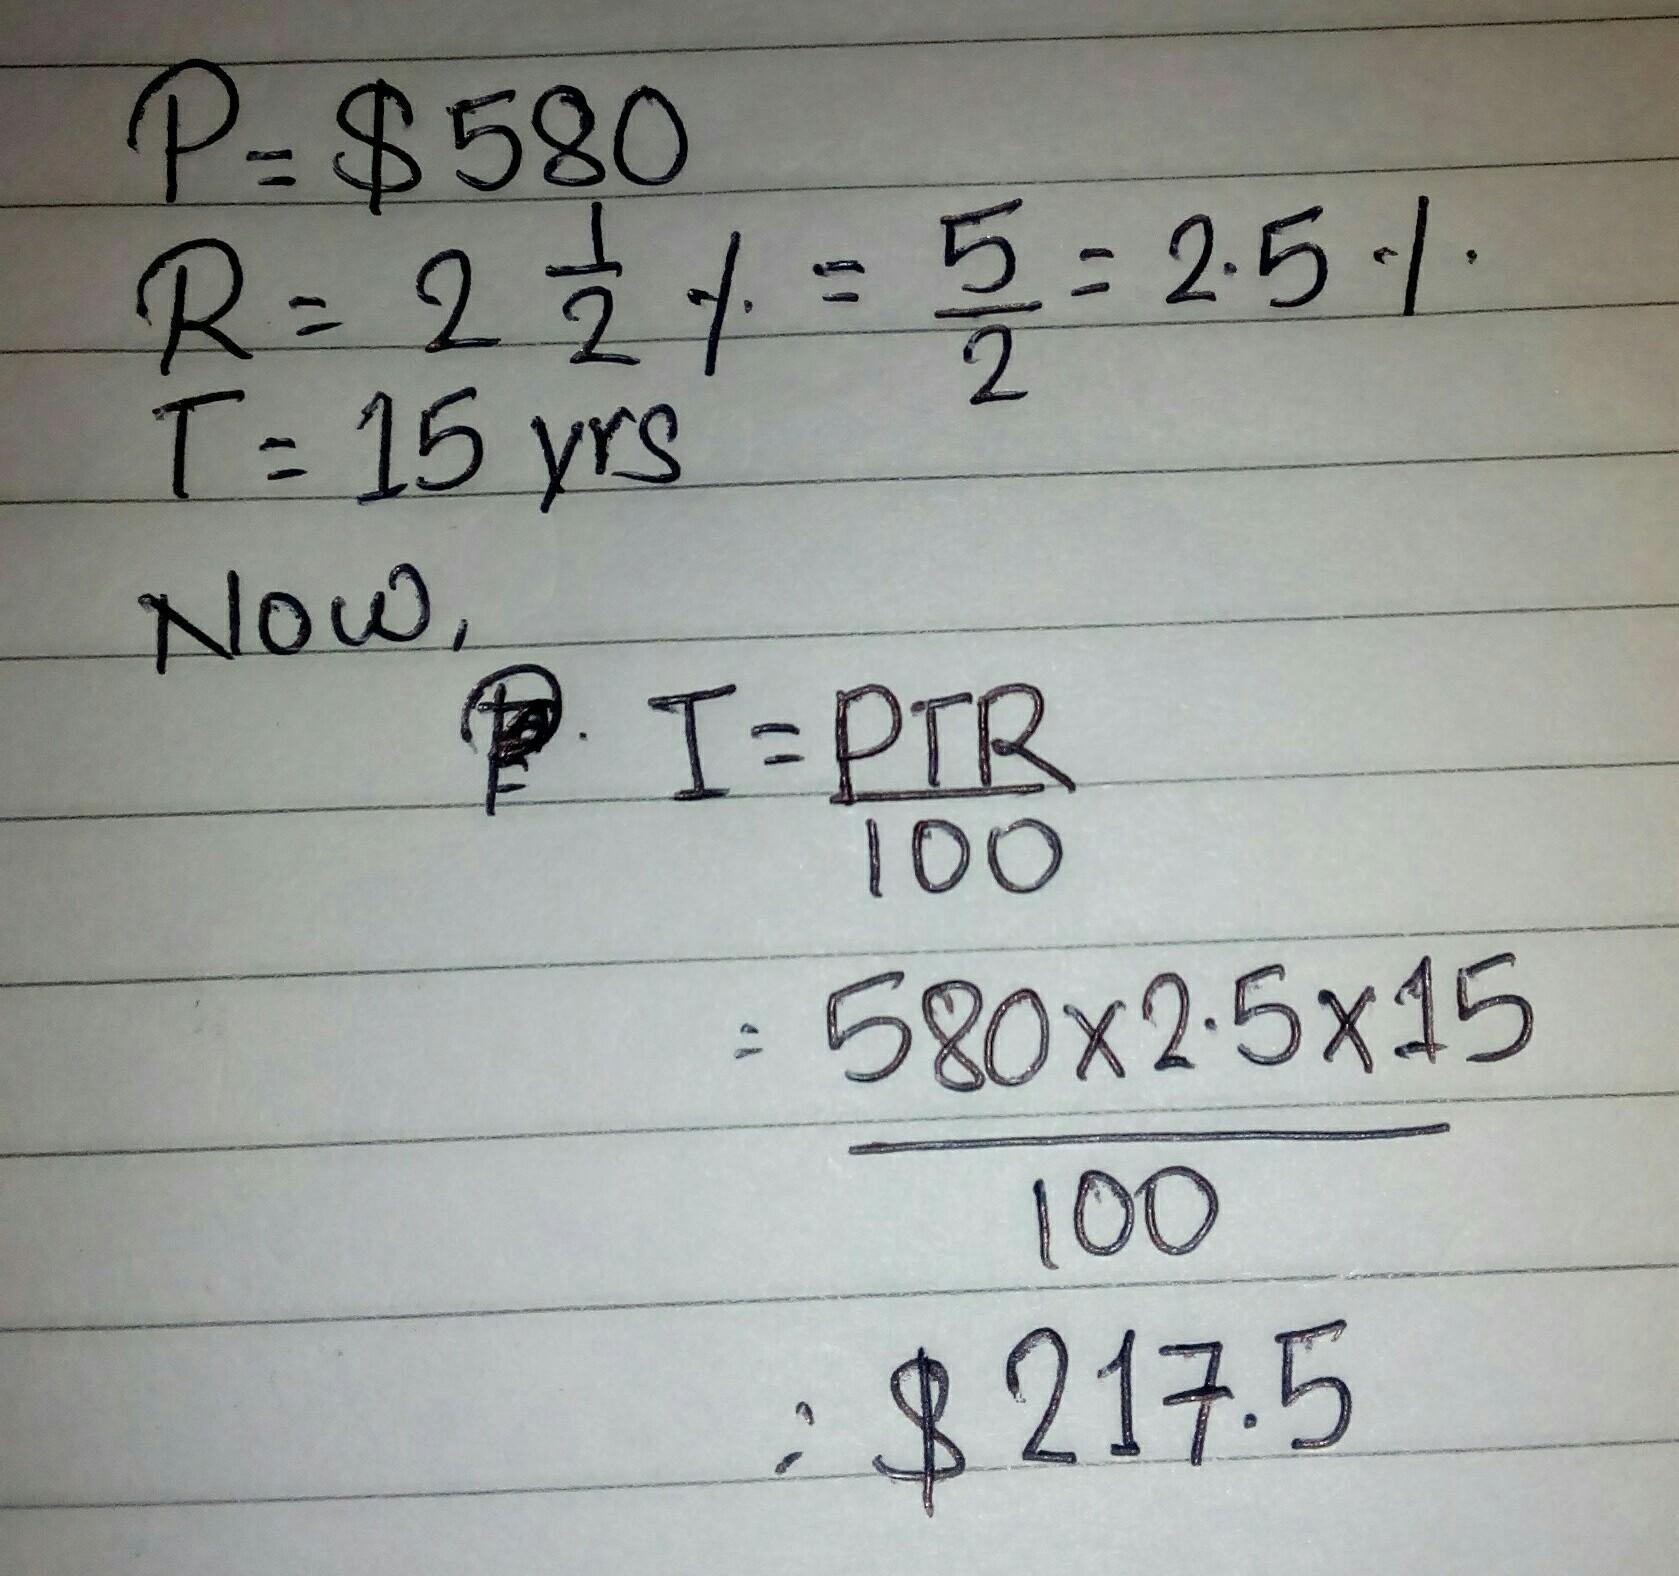 P = $580
R = 2 1/2 % = 5/2 = 2.5 %
T = 15 yrs
Now,
I = PTR/100
= 580x2.5x15/100
= $217.5